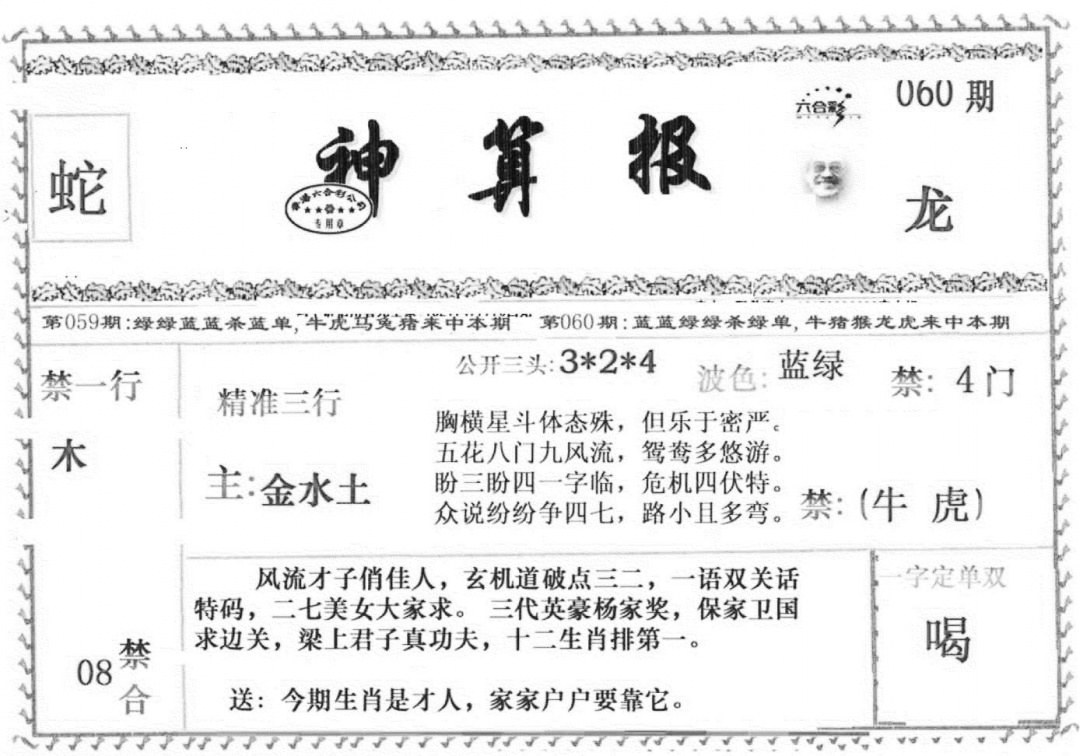 060 期
六合彩
蛇
神算报
香港六合彩公司
专用章
龙
第059期:绿绿蓝蓝杀蓝单,牛虎马兔猪来中本期 第060期:蓝蓝绿绿杀绿单,牛猪猴龙虎来中本期
禁一行
木
精准三行
主:金水土
公开三头:3*2*4 波色:蓝绿 禁: 4门
胸横星斗体态殊，但乐于密严。
五花八门九风流，鸳鸯多悠游。
盼三盼四一字临，危机四伏特。
众说纷纷争四七，路小且多弯。
禁:(牛 虎)
08 禁合
风流才子俏佳人，玄机道破点三二，一语双关话
特码，二七美女大家求。 三代英豪杨家奖，保家卫国
求边关，梁上君子真功夫，十二生肖排第一。
送：今期生肖是才人，家家户户要靠它。
一字定单双
喝